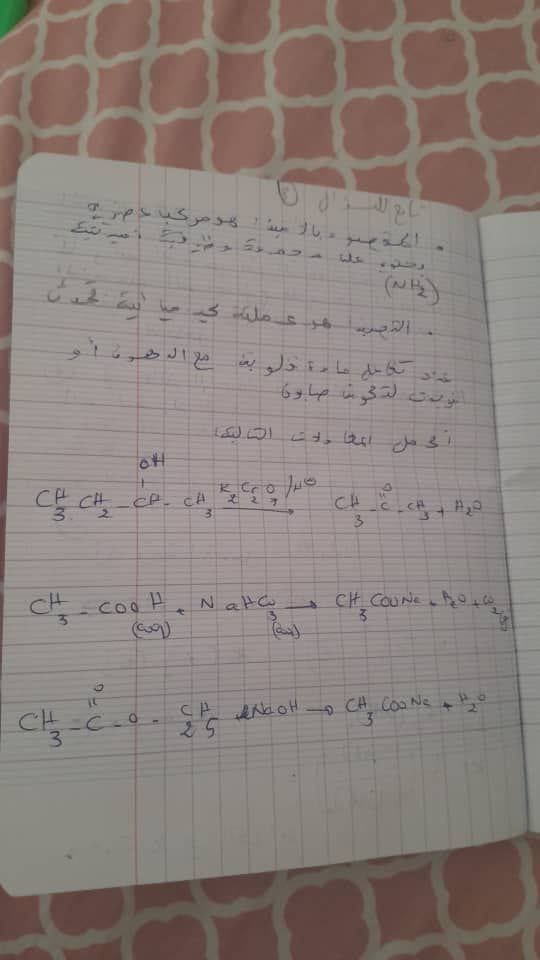 تابع للسؤال
هو مركب عضوي
يحتوي على مجموعة وظيفية أمينية
(NH2)
• التصبن هو عملية كيميائية تحدث
عند تفاعل مادة قلوية مع الدهون أو
الزيوت لتكوين صابون
أكمل المعادلات التالية
CH3 CH2 - CH(OH) - CH3 K2Cr2O7/H⊕ → CH3 - C(=O) - CH3 + H2O
CH3 - COOH (aq) + NaHCO3 (aq) → CH3COONa + H2O + CO2(g)
CH3 - C(=O) - O - C2H5 + NaOH → CH3COONa + H2O